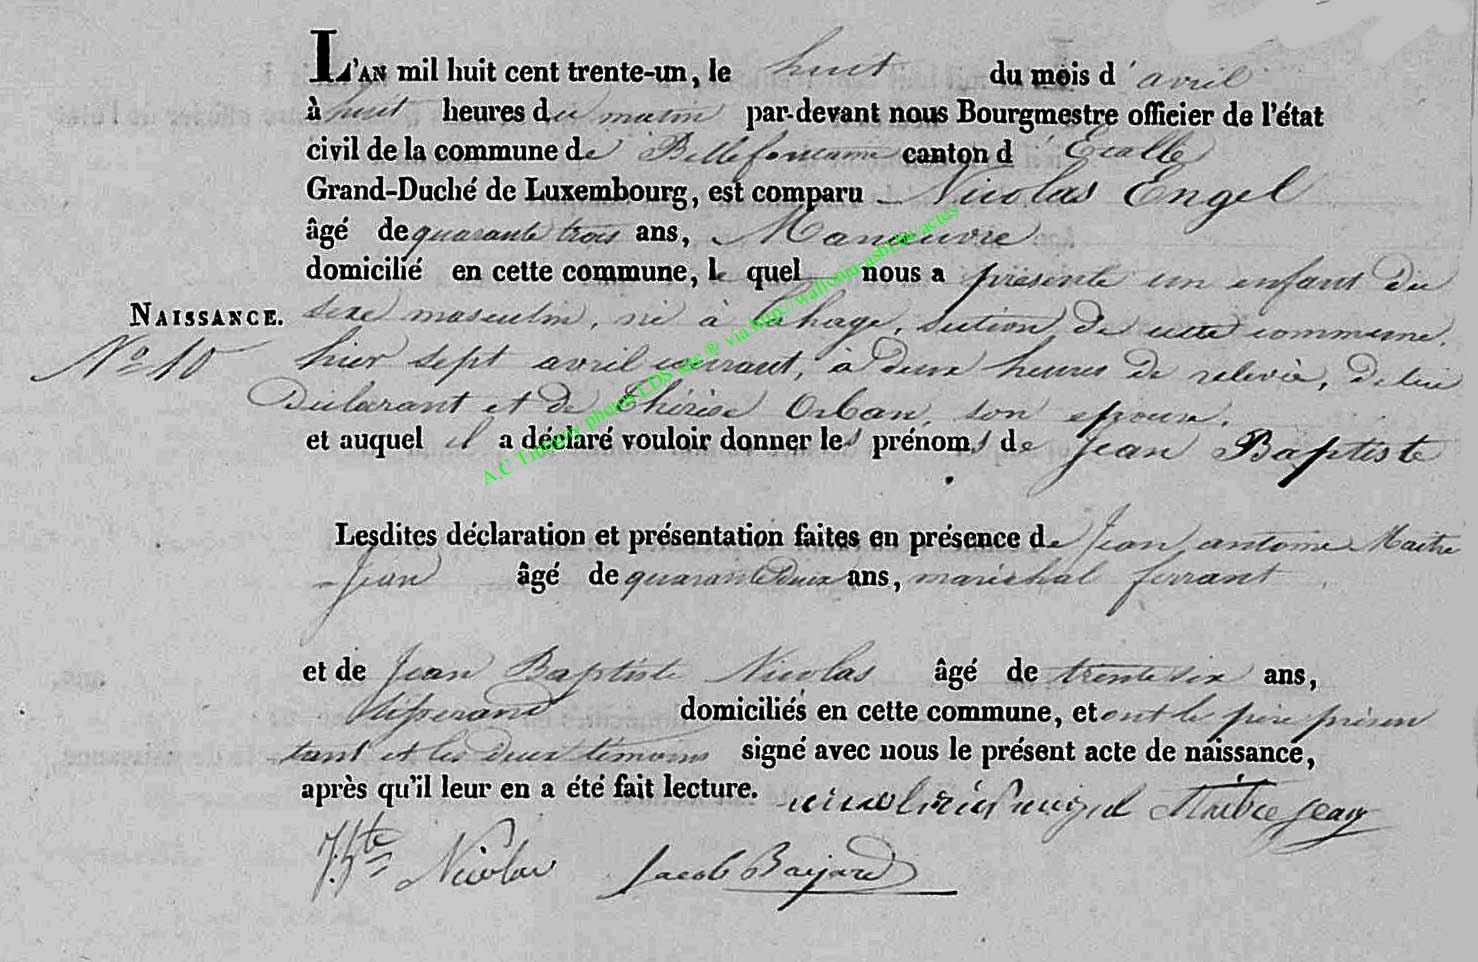 L'AN mil huit cent trente-un, le huit du mois d'avril
à huit heures du matin par-devant nous Bourgmestre officier de l'état
civil de la commune de Bellefontaine canton d'Etalle
Grand-Duché de Luxembourg, est comparu Nicolas Engel
âgé de quarante trois ans, Manœuvre
domicilié en cette commune, le quel nous a présenté un enfant du
NAISSANCE. sexe masculin, né à lahage, section de cette commune.
No 10 hier sept avril courant, à deux heures de relevée, de lui
Déclarant et de Thérèse Orban, son epouse.
et auquel il a déclaré vouloir donner les prénoms de Jean Baptiste
Lesdites déclaration et présentation faites en présence de Jean antoine Maitre
-Jean âgé de quarante deux ans, maréchal ferrant
et de Jean Baptiste Nicolas âgé de trente six ans,
tisserand domiciliés en cette commune, et ont le père présen
tant et les deux témoins signé avec nous le présent acte de naissance,
après qu'il leur en a été fait lecture. Maitre jean
J.Bte Nicolas Jacob Bajard
A.C Tintigny photos LDS site ® via http://wallonia-asbl.be/actes